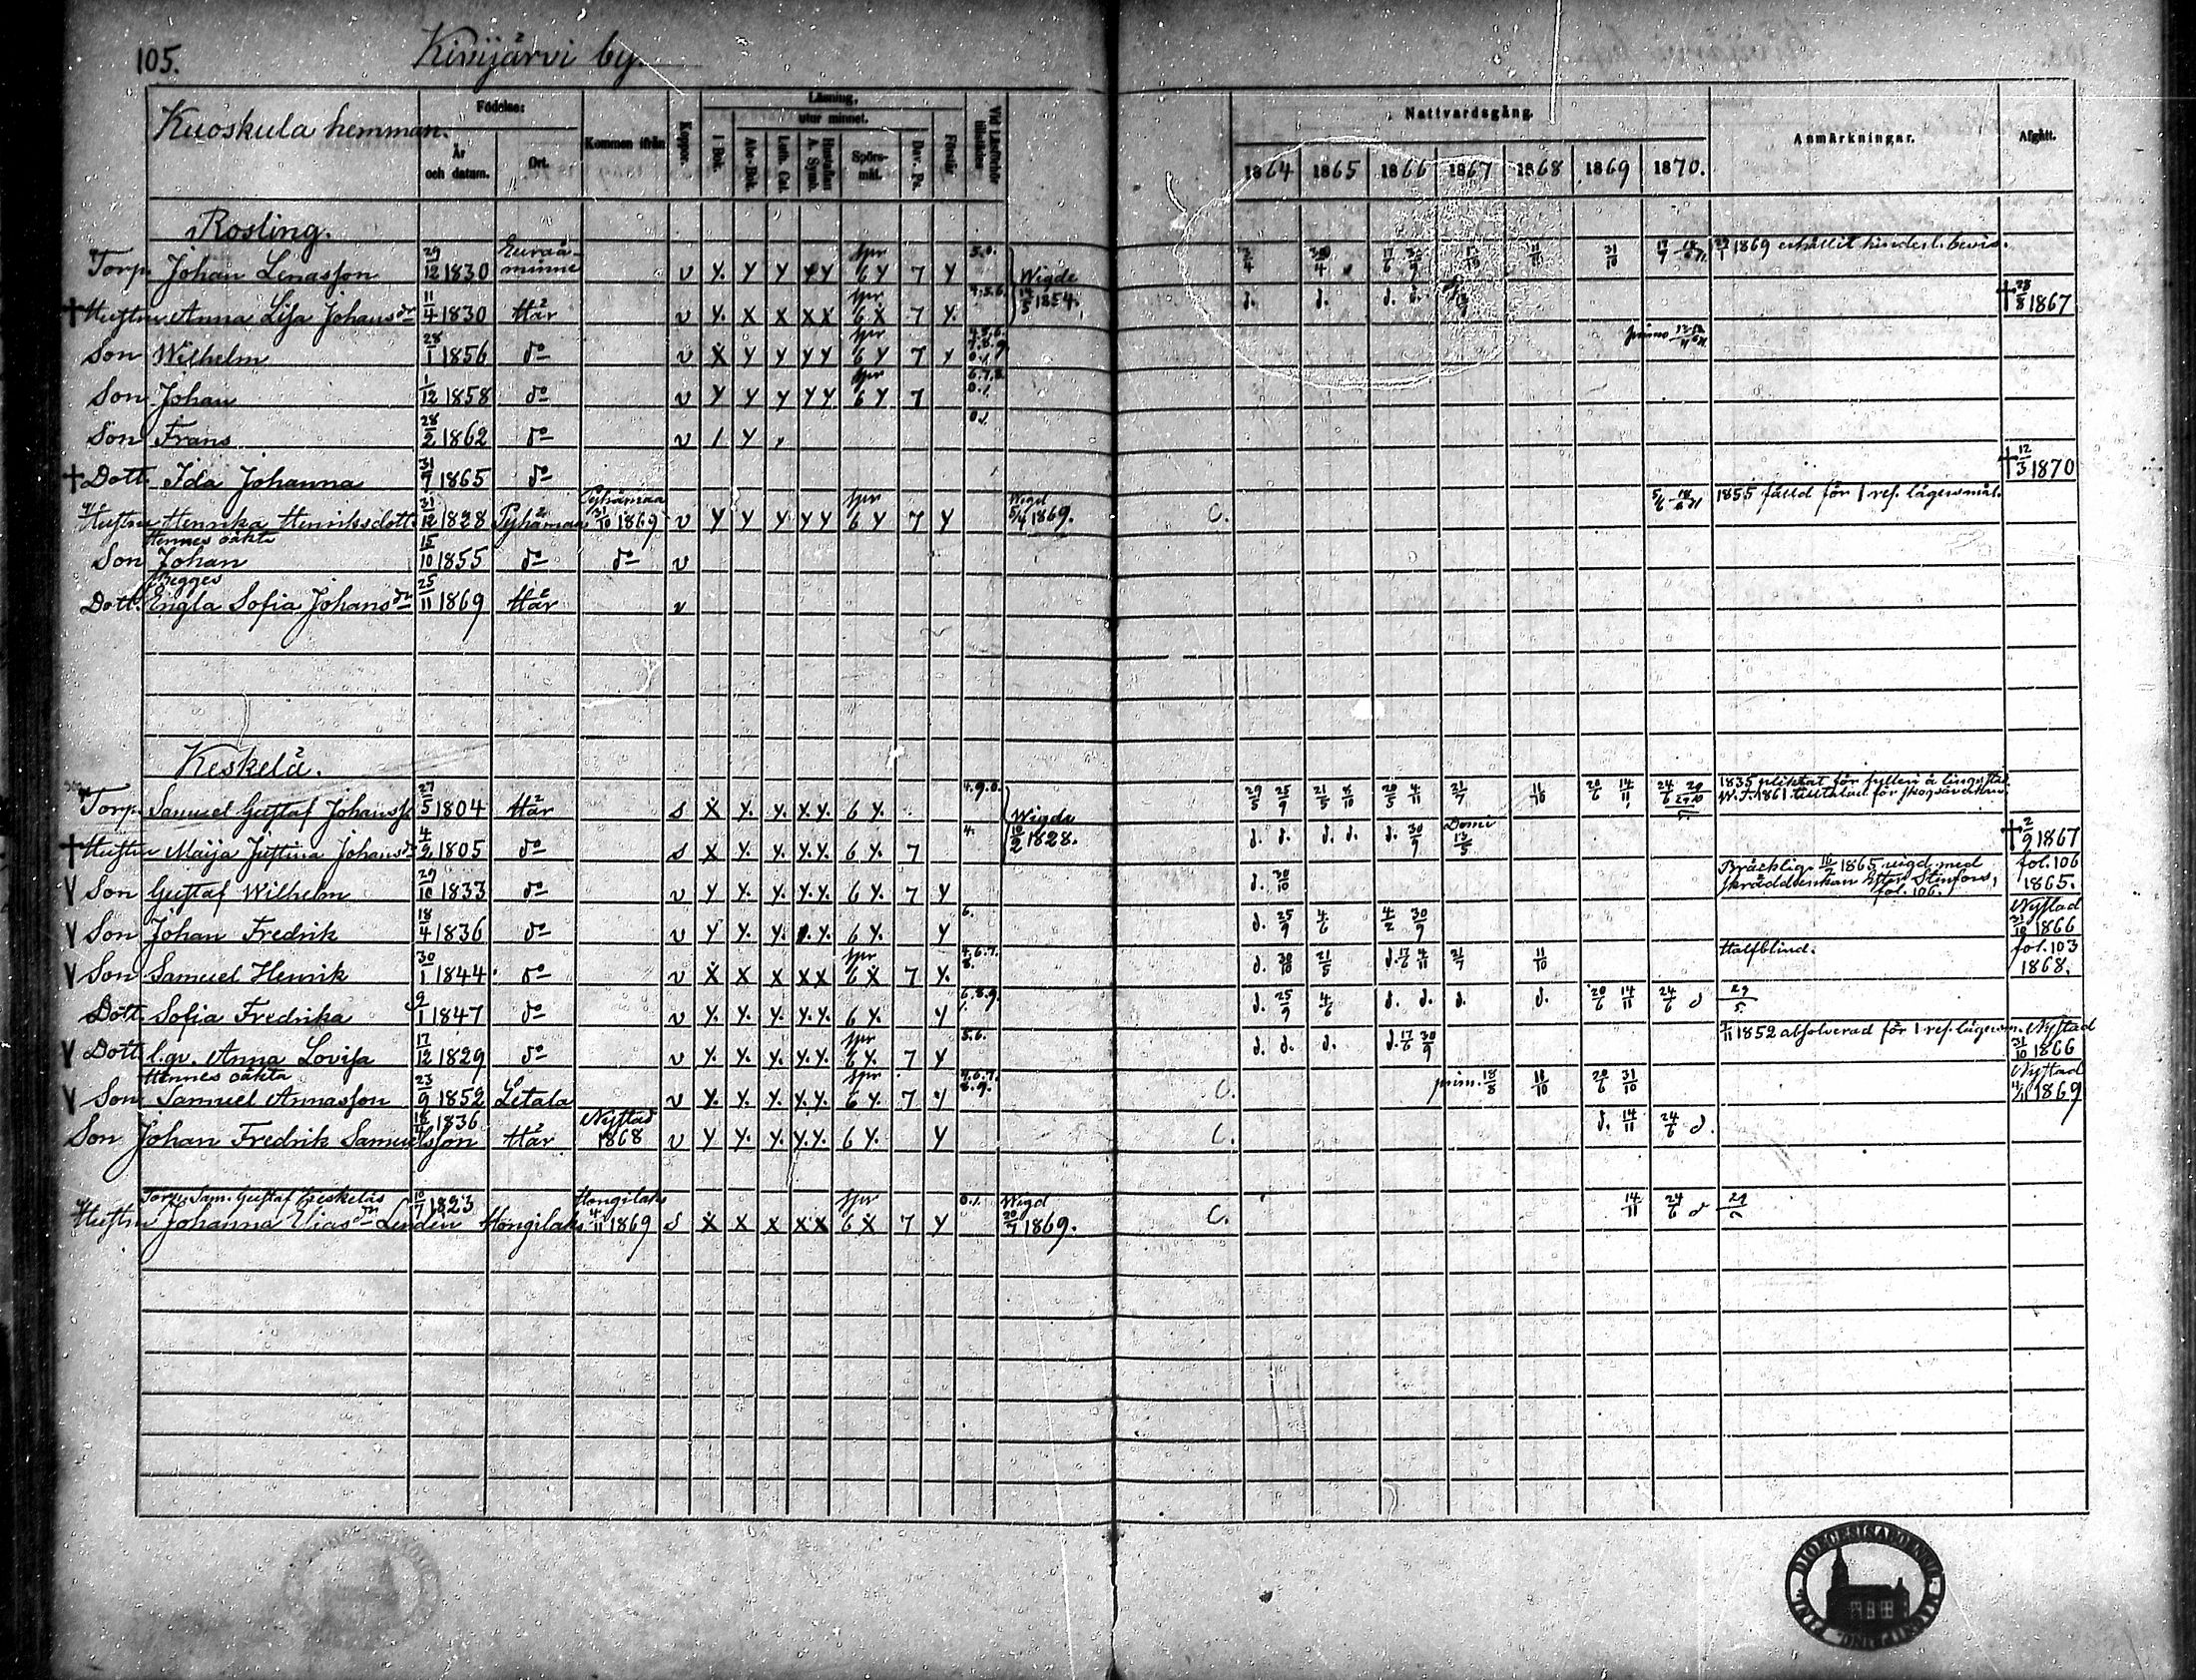 105. Kivijärvi by.
Kuoskula hemman. Födelse: År och datum. Ort. Kommen ifrån Koppor. Läsning, I Bok. utur minnet. Abc-Bok. Luth. Cat. Hustaflan A. Symb. Spörs-mål. Dav. Ps. Förstår Vid Läseförhör tillstädes
Nattvardsgång. 1864 1865 1866 1867 1868 1869 1870. Anmärkningar. Afgått.
Rosling.
Torp. Johan Lenasson 29/12 1830 Euraå-minne v y. y y y y spr 6 y 7 y 5.0. Wigde 14/5 1854. 1869 erhållit hindersl. bevis.
† Hustru Anna Lisa Johansdr 11/4 1830 Här v y. x x x x spr 6 x 7 y. 4.5.6. † 28/8 1867
Son Wilhelm 28/1 1856 do v x y y y y spr 6 y 7 y primo
Son Johan 1/12 1858 do v y y y y y spr 6 y 7 6.7.8. 0.1.
Son Frans 28/2 1862 do v / y 0.1.
† Dott. Ida Johanna 31/7 1865 do † 12/3 1870
Hustru Henrika Henriksdott. 31/12 1828 Pyhämaa Pyhämaa 31/10 1869 v y y y y y spr 6 y 7 y Wigd 5/4 1869. C. 1855 fälld för 1 ref. lägersmål.
Hennes oäkta
Son Johan 15/10 1855 do do v
Begges
Dott. Engla Sofia Johansdr 25/11 1869 Här v
Keskelä.
Torp. Samuel Gustaf Johanss. 27/5 1804 Här s x y. y. y. y. 6 y. 4.9.0. Wigde 10/2 1828. 29/5 25/9 21/5 8/10 20/5 4/11 21/7 11/10 20/6 14/11 24/6 1835 pliktat för fylleri å
W.T. 1861 tilltalad för
† Hustru Maija Justina Johansdr 4/2 1805 do s x y. y. y. y. 6 y. 7 4. d. d. d. d. d. 30/9 Domi 13/5 † 2/9 1867
V Son Gustaf Wilhelm 29/10 1833 do v y y. y. y. y. 6 y. 7 y d. 30/10 Bräcklig. 16/2 1865 vigd med skräddenkan Ester Stinfors, fol. 106. fol. 106 1865.
V Son Johan Fredrik 18/4 1836 do v y y. y. y. y. 6 y. y 6. d. 25/9 4/6 4/2 30/9 Nystad 31/10 1866
V Son Samuel Henrik 30/1 1844 do v x x x x x spr 6 x 7 y. 4.6.7. 8. d. 30/10 21/5 d. 17/6 4/11 21/7 11/10 Halfblind. fol. 103 1868.
Dott. Sofia Fredrika 9/1 1847 do v y. y. y. y. y. 6 y. y 6.8.9. d. 25/9 4/6 d. d. d. d. 20/6 14/11 24/6 d 29/5
V Dott. l.qv. Anna Lovisa 17/12 1829 do v y. y. y. y. y. spr 6 y. 7 y 5.6. d. d. d. d. 17/6 30/9 1852 absolverad för 1 ref. lägersm. Nystad 31/10 1866
Hennes oäkta
V Son Samuel Annasson 23/9 1852 Letala v y. y. y. y. y. spr 6 y 7 y 4.6.7. 8.9. C. prim. 18/8 11/10 20/6 31/10 Nystad 4/11 1869
Son Johan Fredrik Samuelsson 18/4 1836 Här Nystad 1868 v y y. y. y. y. 6 y. y C. d. 14/11 24/6 d.
Torp. Sam. Gustaf Keskeläs
Hustru Johanna Eliasdr Lindén 10/7 1823 Hongilaks Hongilaks 4/11 1869 s x x x x x spr 6 x 7 y 0.1. Wigd 20/7 1869. C. 14/11 24/6 d 29/5